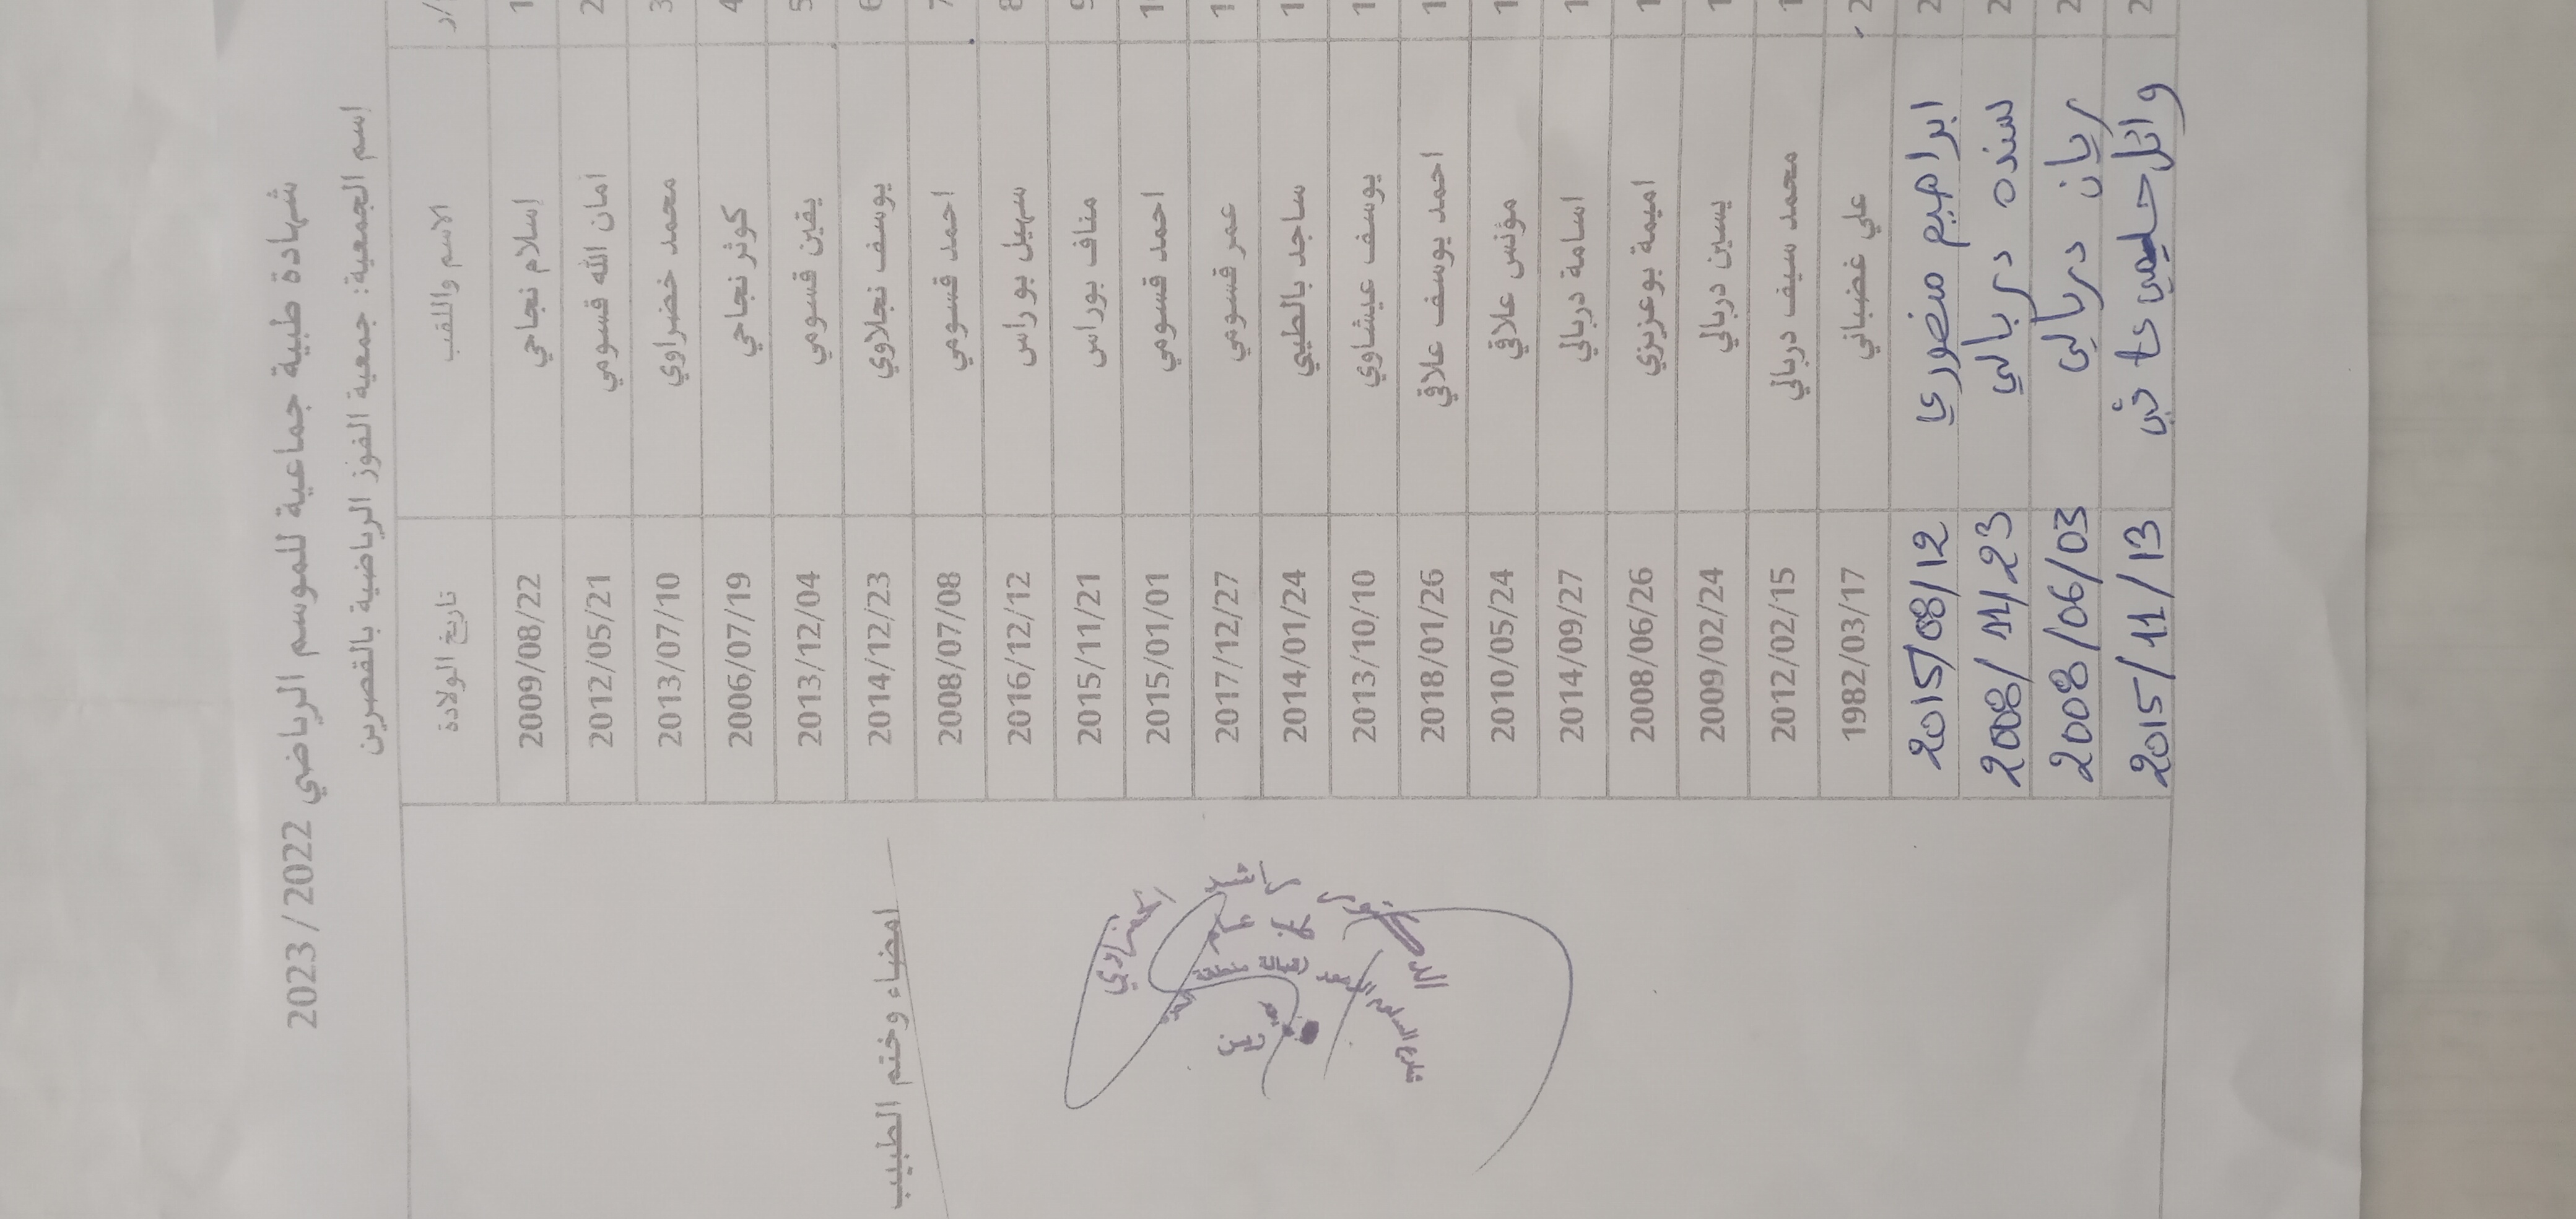 شهادة طبية جماعية للموسم الرياضي 2022/ 2023
إسم الجمعية: جمعية الفوز الرياضية بالقصرين
الاسم واللقب تاريخ الولادة
1 إسلام نجاحي 2009/08/22
2 امان الله قسومي 2012/05/21
3 محمد خضراوي 2013/07/10
4 كوثر نجاحي 2006/07/19
5 يقين قسومي 2013/12/04
6 يوسف نجلاوي 2014/12/23
7 احمد قسومي 2008/07/08
8 سهيل بوراس 2016/12/12
9 مناف بوراس 2015/11/21
احمد قسومي 2015/01/01
عمر قسومي 2017/12/27
ساجد بالطيبي 2014/01/24
يوسف عيشاوي 2013/10/10
احمد يوسف علاقي 2018/01/26
مؤنس علاقي 2010/05/24
اسامة دربالي 2014/09/27
اميمة بوعزيزي 2008/06/26
يسين دربالي 2009/02/24
محمد سيف دربالي 2012/02/15
علي غضباني 1982/03/17
ابراهيم منصوري 2015/08/12
سنده دربالي 2008/11/23
ريان دربالي 2008/06/03
وائل 2015/11/13
امضاء وختم الطبيب